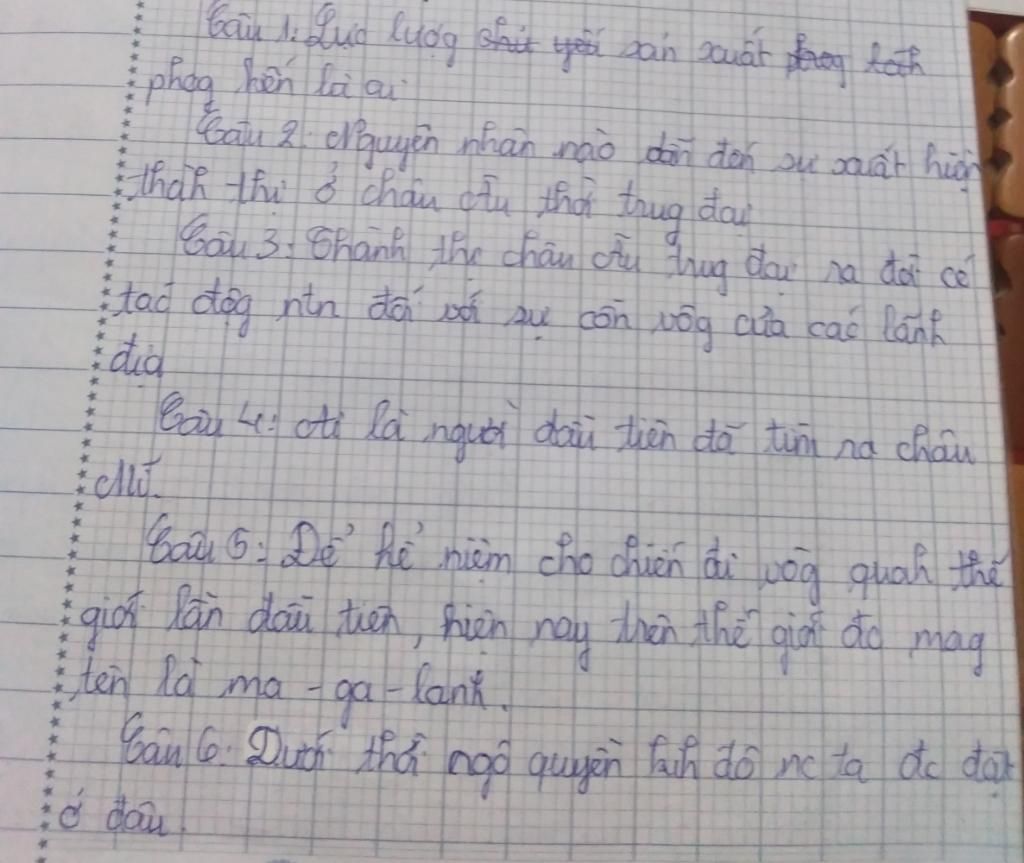 Câu 1: Lực lượg chủ yếu sản xuất trog lãnh
phog kiến là ai
Câu 2: Nguyên nhân nào dẫn đến sự xuất hiện
thàh thị ở châu Âu thời trug đại
Câu 3: Thành thị châu Âu trug đại ra đời có
tác độg ntn đối với sự còn vog của các lãnh
địa
Câu 4: Ai là người đầu tiên đã tìm ra châu
Mĩ.
Câu 5: Để kỉ niệm cho chiến đi vòg quah thế
giới lần đầu tiên, hiện nay trên thế giới đc mag
tên là ma-ga-lanh.
Câu 6: Dưới thời ngô quyền kih đô nc ta đc đặt
ở đâu